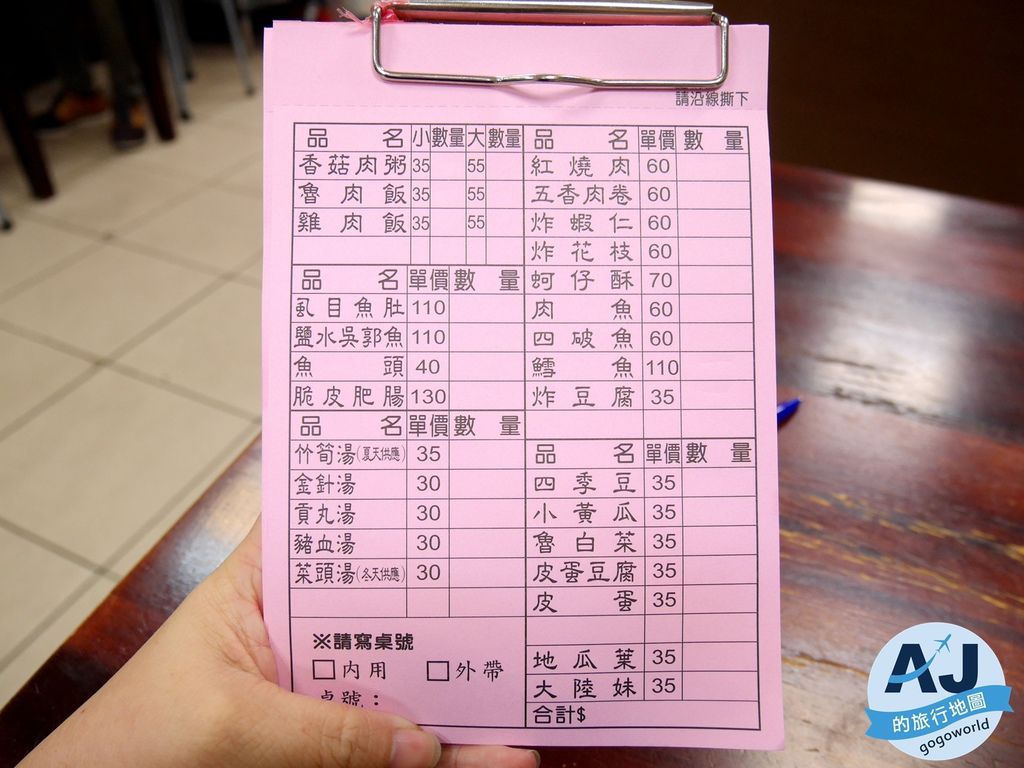 請沿線撕下
品名 小 數量 大 數量
香菇肉粥 35 55
魯肉飯 35 55
雞肉飯 35 55
品名 單價 數量
虱目魚肚 110
鹽水吳郭魚 110
魚頭 40
脆皮肥腸 130
品名 單價 數量
竹筍湯(夏天供應) 35
金針湯 30
貢丸湯 30
豬血湯 30
菜頭湯(冬天供應) 30
※請寫桌號
□內用 □外帶
桌號：
品名 單價 數量
紅燒肉 60
五香肉卷 60
炸蝦仁 60
炸花枝 60
蚵仔酥 70
肉魚 60
四破魚 60
鱈魚 110
炸豆腐 35
品名 單價 數量
四季豆 35
小黃瓜 35
魯白菜 35
皮蛋豆腐 35
皮蛋 35
地瓜葉 35
大陸妹 35
合計$
AJ
的旅行地圖
gogoworld